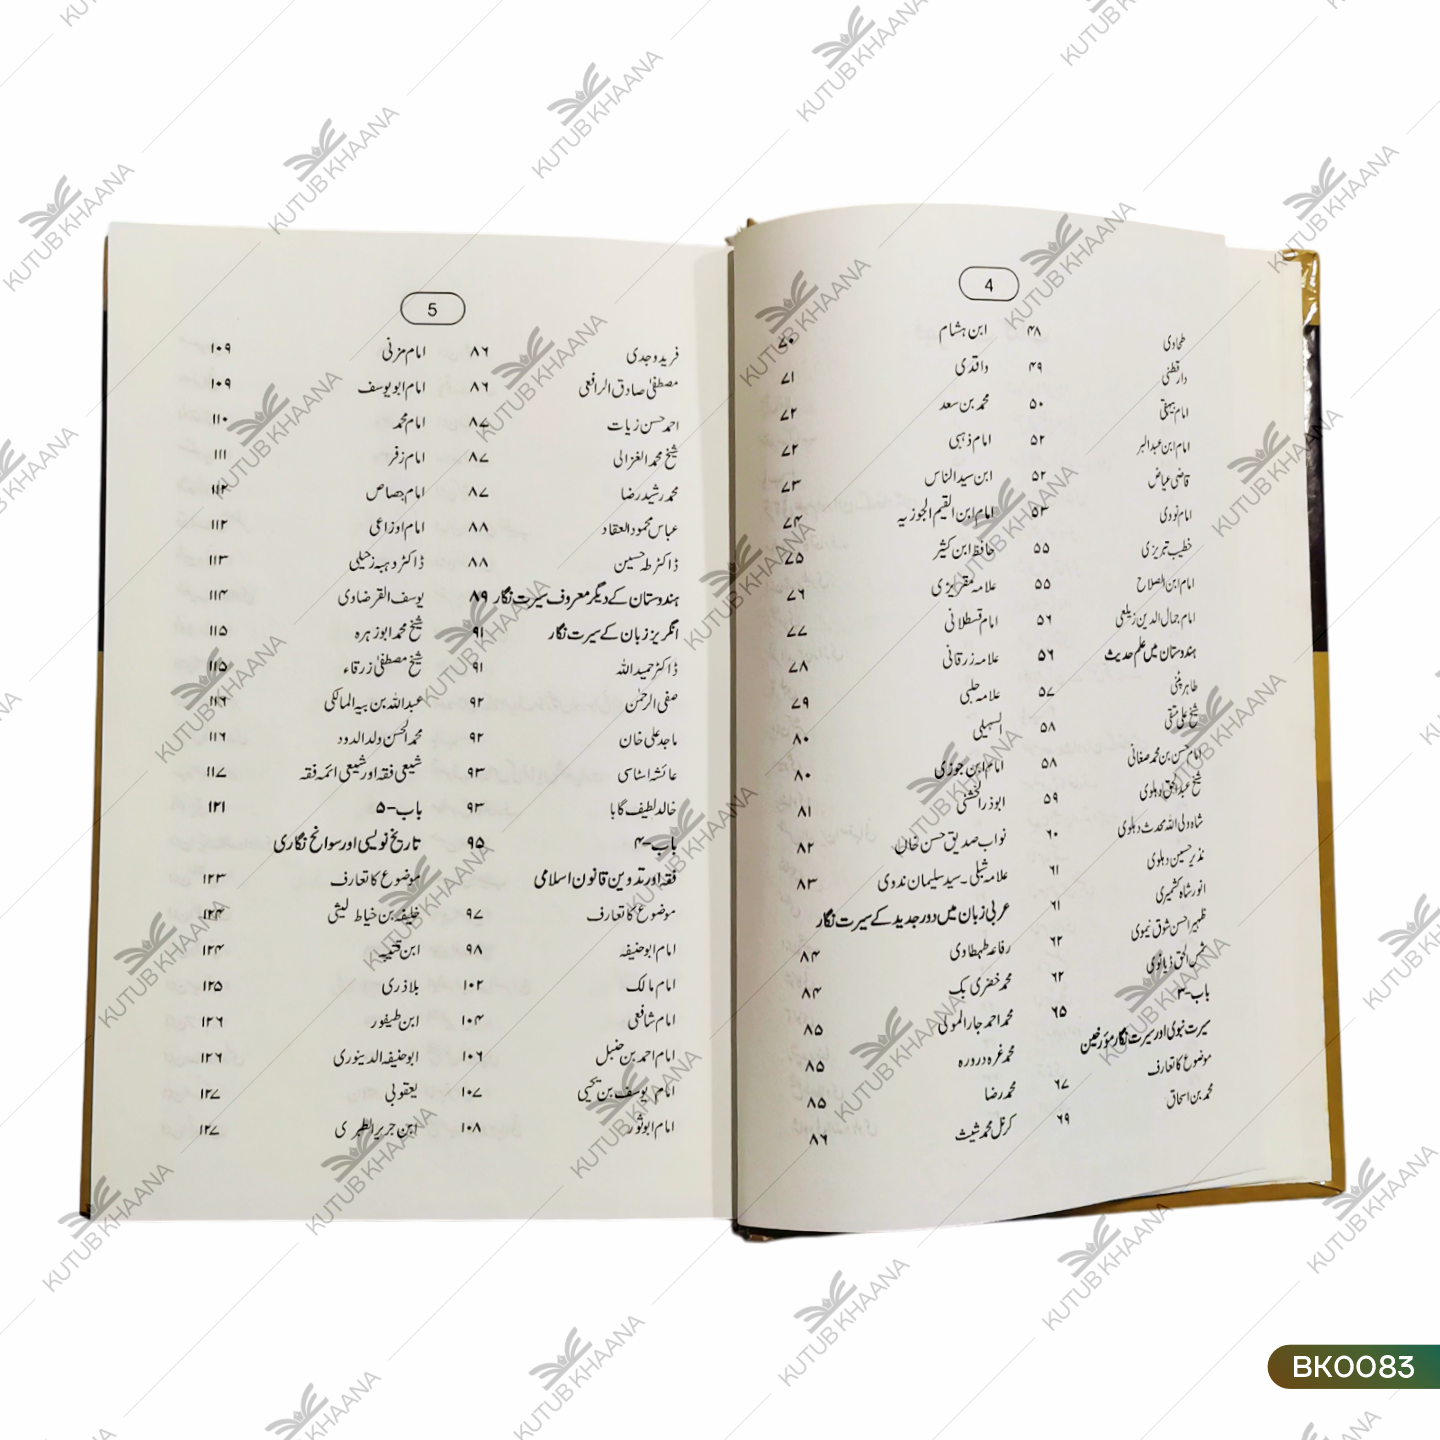 4
طحاوی ۴۸
دارقطنی ۴۹
امام بیہقی ۵۰
امام ابن عبدالبر ۵۲
قاضی عیاض ۵۲
امام نووی ۵۳
خطیب تبریزی ۵۵
امام ابن الصلاح ۵۵
امام جمال الدین زیلعی ۵۶
ہندوستان میں علم حدیث ۵۶
طاہر پٹنی ۵۷
شیخ علی متقی ۵۸
امام حسن بن محمد صغانی ۵۸
شیخ عبدالحق دہلوی ۵۹
شاہ ولی اللہ محدث دہلوی ۶۰
نذیر حسین دہلوی ۶۱
انور شاہ کشمیری ۶۱
ظہیر احسن شوق نیموی ۶۲
شمس الحق ڈیانوی ۶۲
باب-۳ ۶۵
سیرت نبوی اور سیرت نگار مؤرخین
موضوع کا تعارف ۶۷
محمد بن اسحاق ۶۹
ابن ہشام ۷۰
واقدی ۷۱
محمد بن سعد ۷۲
امام ذہبی ۷۲
ابن سید الناس ۷۳
امام ابن القیم الجوزیہ ۷۴
حافظ ابن کثیر ۷۵
علامہ مقریزی ۷۶
امام قسطلانی ۷۷
علامہ زرقانی ۷۸
علامہ حلبی ۷۹
السہیلی ۸۰
امام ابن جوزی ۸۰
ابوذر الخشنی ۸۱
نواب صدیق حسن خان ۸۲
علامہ شبلی۔سید سلیمان ندوی ۸۳
عربی زبان میں دور جدید کے سیرت نگار
رفاعہ طہطاوی ۸۴
محمد خضری بک ۸۴
محمد احمد جار المولی ۸۵
محمد غرہ دروزہ ۸۵
محمد رضا ۸۵
کرنل محمد شیث ۸۶
5
فرید وجدی ۸۶
مصطفیٰ صادق الرافعی ۸۶
احمد حسن زیات ۸۷
شیخ محمد الغزالی ۸۷
محمد رشید رضا ۸۷
عباس محمود العقاد ۸۸
ڈاکٹر طہ حسین ۸۸
ہندوستان کے دیگر معروف سیرت نگار ۸۹
انگریز زبان کے سیرت نگار ۹۱
ڈاکٹر حمید اللہ ۹۱
صفی الرحمٰن ۹۲
ماجد علی خان ۹۲
عائشہ اسٹاسی ۹۳
خالد لطیف گابا ۹۳
باب-۴ ۹۵
فقہ اور تدوین قانون اسلامی
موضوع کا تعارف ۹۷
امام ابوحنیفہ ۹۸
امام مالک ۱۰۲
امام شافعی ۱۰۴
امام احمد بن حنبل ۱۰۶
امام یوسف بن یحیٰی ۱۰۷
امام ابوثور ۱۰۸
امام مزنی ۱۰۹
امام ابویوسف ۱۰۹
امام محمد ۱۱۰
امام زفر ۱۱۱
امام جصاص ۱۱۲
امام اوزاعی ۱۱۲
ڈاکٹر وہبہ زحیلی ۱۱۳
یوسف القرضاوی ۱۱۴
شیخ محمد ابوزہرہ ۱۱۵
شیخ مصطفیٰ زرقاء ۱۱۵
عبداللہ بن بیہ المالکی ۱۱۶
محمد الحسن ولد الددو ۱۱۶
شیعی فقہ اور شیعی ائمہ فقہ ۱۱۷
باب-۵ ۱۲۱
تاریخ نویسی اور سوانح نگاری
موضوع کا تعارف ۱۲۳
خلیفہ بن خیاط لیثی ۱۲۴
ابن قتیبہ ۱۲۴
بلاذری ۱۲۵
ابن طیفور ۱۲۶
ابوحنیفہ الدینوری ۱۲۶
یعقوبی ۱۲۷
ابن جریر الطبری ۱۲۷
KUTUB KHAANA
BK0083